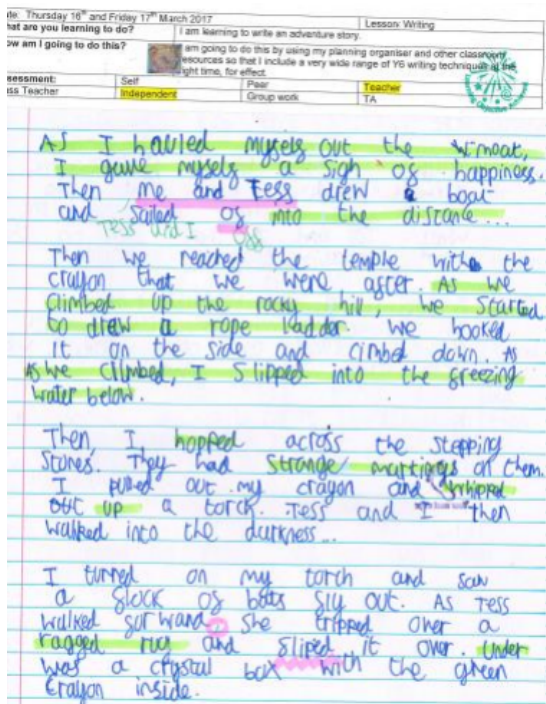 Date: Thursday 16th and Friday 17th March 2017 Lesson: Writing
What are you learning to do? I am learning to write an adventure story.
How am I going to do this? I am going to do this by using my planning organiser and other classroom
resources so that I include a very wide range of Y6 writing techniques at the
right time, for effect.
Assessment: Self Peer Teacher
Class Teacher Independent Group work TA
As I hauled myself out the moat,
I gave myself a sigh of happiness.
Then me and Tess drew a boat
and sailed of into the distance...
Tess and I off
Then we reached the temple with the
crayon that we were after. As we
climbed up the rocky hill, we started
to draw a rope ladder. We hooked
it on the side and climbed down. As
As we climbed, I slipped into the freezing
water below.
Then, I hopped across the stepping
stones. They had strange markings on them.
I pulled out my crayon and whipped
out up a torch. Tess and I then
walked into the darkness...
I turned on my torch and saw
a flock of bats fly out. As Tess
walked forward she tripped over a
ragged rug and fliped it over. Under
was a crystal box with the green
crayon inside.